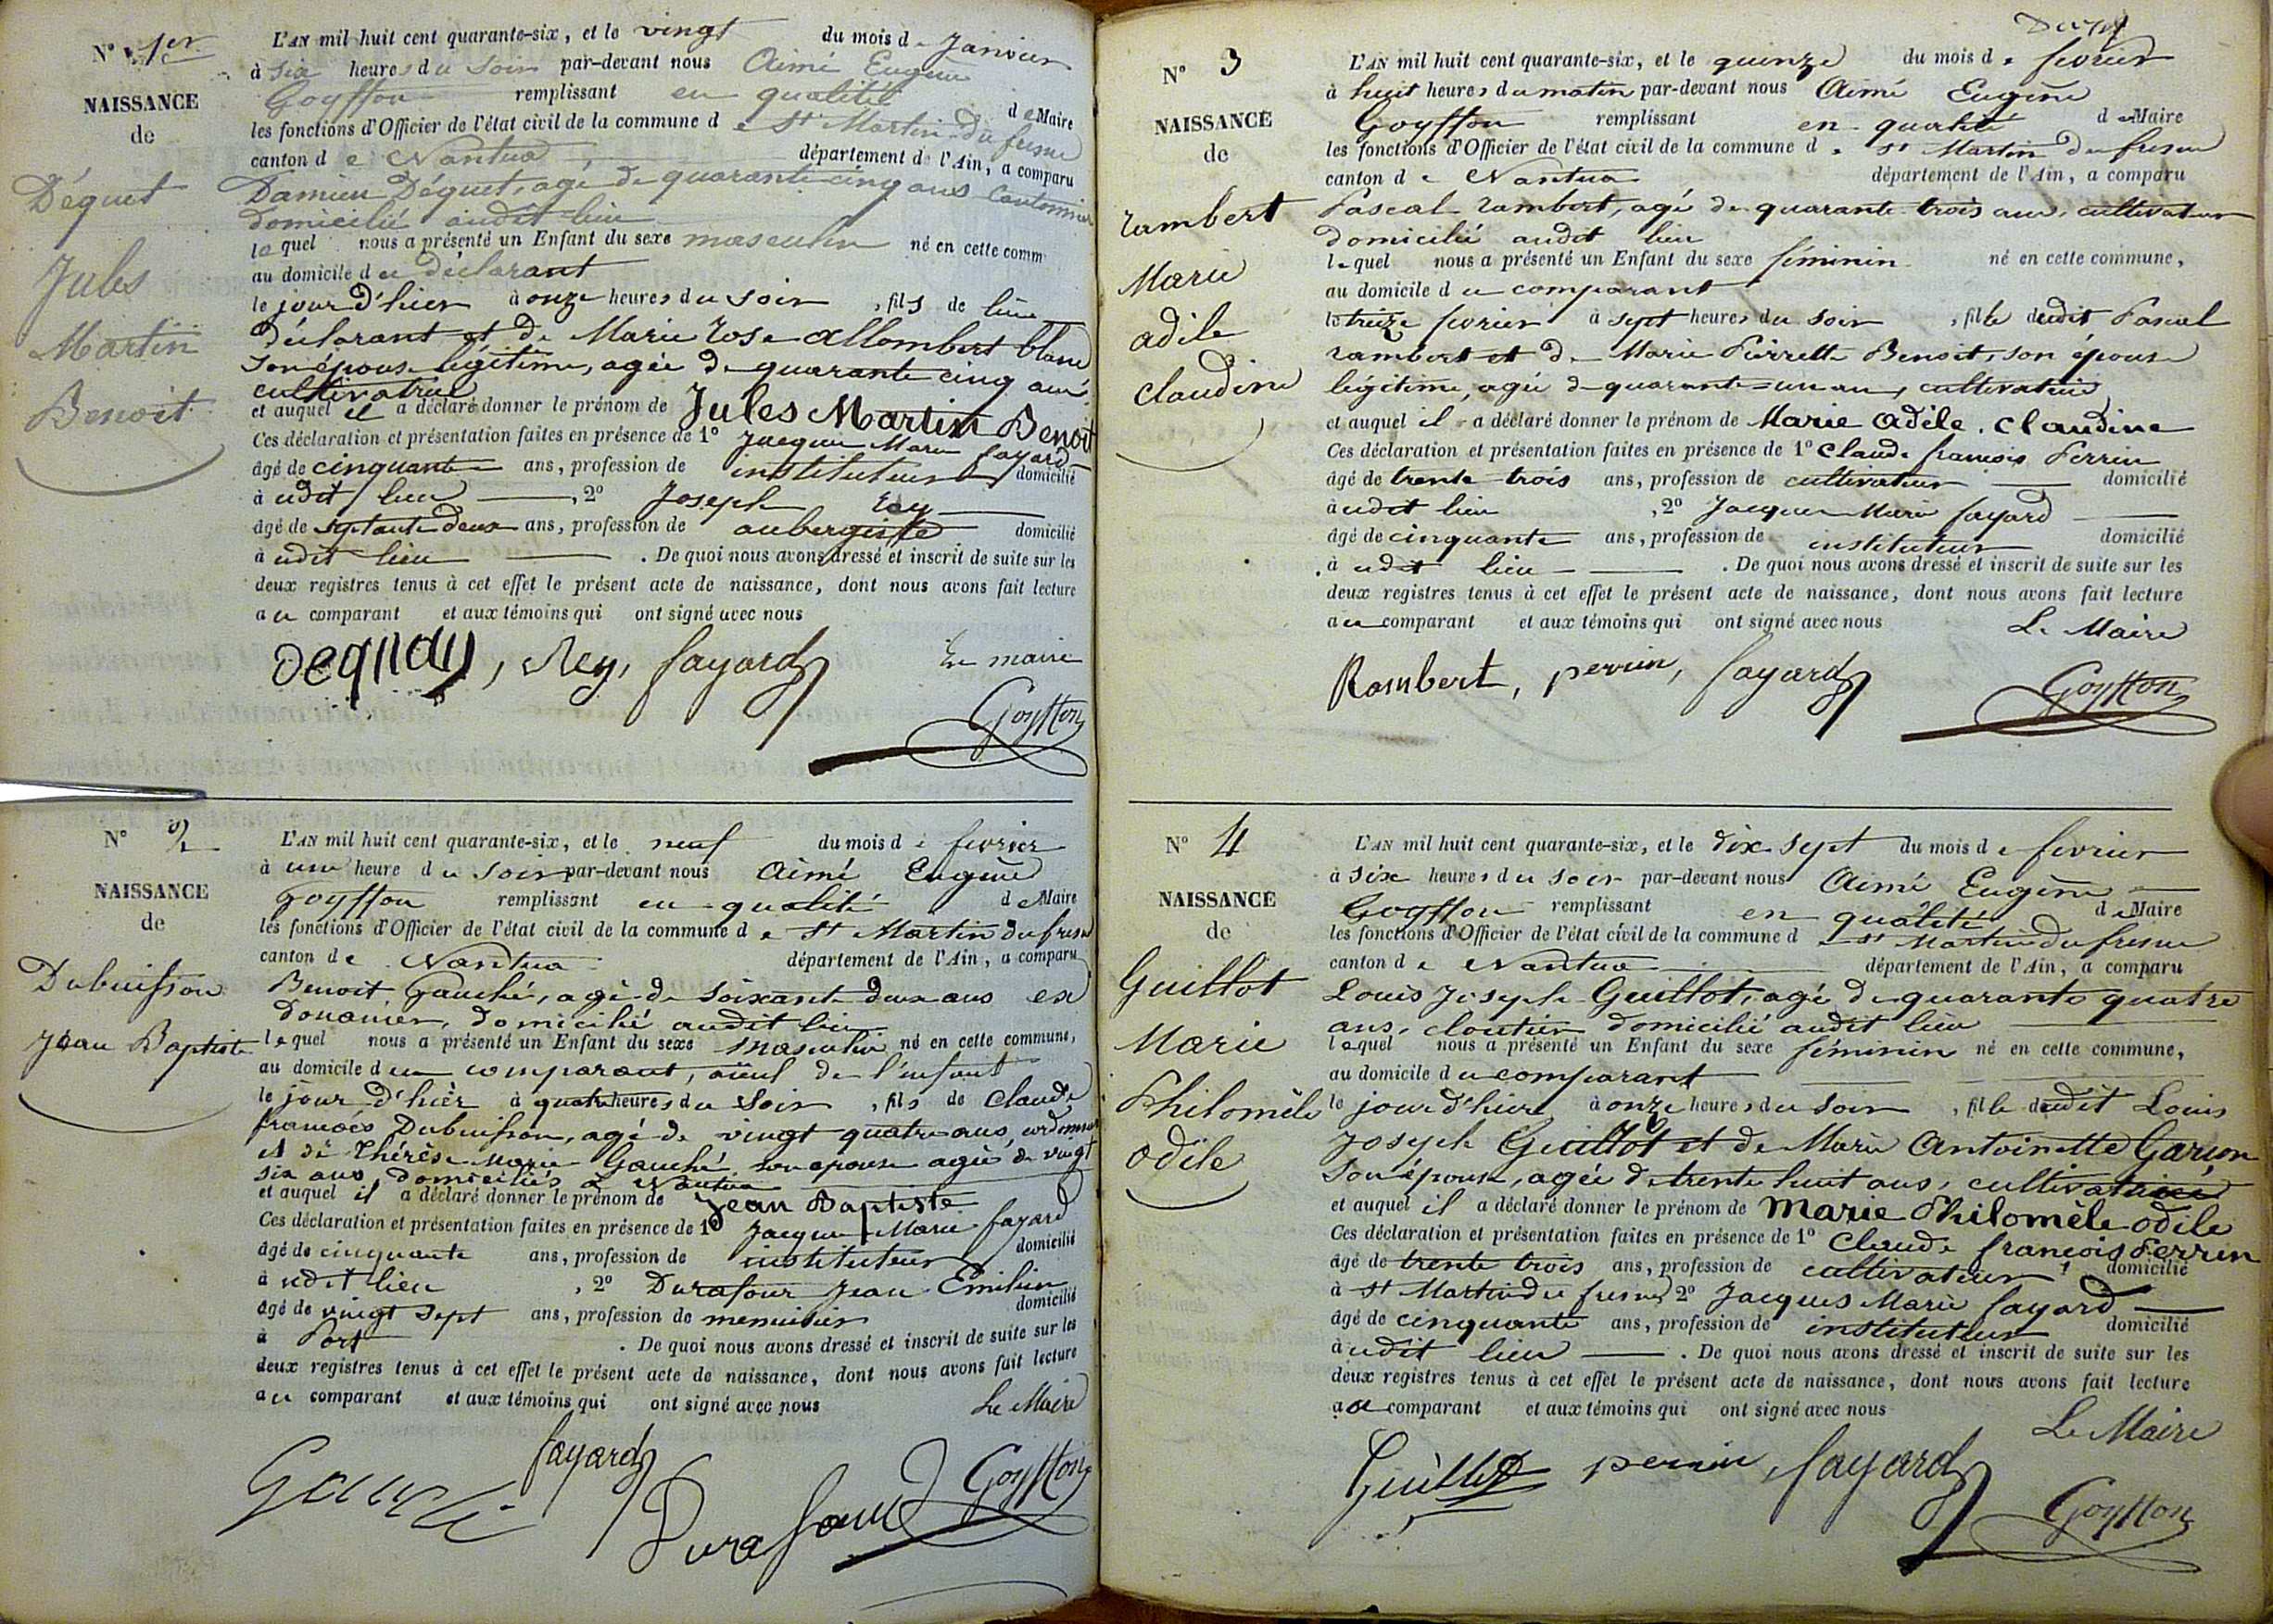 N° 1er
NAISSANCE
de
Déquet
Jules
Martin
Benoit
L'AN mil huit cent quarante-six, et le vingt du mois de Janvier
à six heures du soir par-devant nous Aimé Eugène
Goyffon remplissant en qualité de Maire
les fonctions d'Officier de l'état civil de la commune de St Martin du fresne
canton de Nantua, département de l'Ain, a comparu
Damien Déquet, agé de quarante cinq ans Cantonnier
domicilié audit lieu
lequel nous a présenté un Enfant du sexe masculin né en cette comm
au domicile du déclarant
le jour d'hier à onze heures du soir, fils de lui
déclarant et de Marie Rose Allombert blanc
son épouse légitime, agée de quarante cinq ans
cultivatrice
et auquel il a déclaré donner le prénom de Jules Martin Benoit
Ces déclaration et présentation faites en présence de 1° Jacques Marie fayard
âgé de cinquante ans, profession de instituteur domicilié
à udit lieu, 2° Joseph Rey
âgé de septante deux ans, profession de aubergiste domicilié
à udit lieu. De quoi nous avons dressé et inscrit de suite sur les
deux registres tenus à cet effet le présent acte de naissance, dont nous avons fait lecture
au comparant et aux témoins qui ont signé avec nous
Le maire
, Rey, fayard
Goyffon
N° 2
NAISSANCE
de
Dubuisson
Jean Baptiste
L'AN mil huit cent quarante-six, et le neuf du mois de fevrier
à une heure du soir par-devant nous Aimé Eugène
Goyffon remplissant en qualité de Maire
les fonctions d'Officier de l'état civil de la commune de St Martin du fresne
canton de Nantua département de l'Ain, a comparu
Benoit Gauché, agé de soixante deux ans ex
douanier, domicilié audit lieu
lequel nous a présenté un Enfant du sexe masculin né en cette commune,
au domicile du comparant, aïeul de l'enfant
le jour d'hier à quatre heures du soir, fils de Claude
françois Dubuisson, agé de vingt quatre ans, cordonnier
et de Thérèse Marie Gauché son épouse agée de vingt
six ans domiciliés à Nantua
et auquel il a déclaré donner le prénom de Jean Baptiste
Ces déclaration et présentation faites en présence de 1° Jacques Marie fayard
âgé de cinquante ans, profession de instituteur domicilié
à udit lieu, 2° Durafour Jean Emilien
âgé de vingt sept ans, profession de menuisier domicilié
à Port. De quoi nous avons dressé et inscrit de suite sur les
deux registres tenus à cet effet le présent acte de naissance, dont nous avons fait lecture
au comparant et aux témoins qui ont signé avec nous
Le Maire
Gauché fayard
Durafour Goyffon
N° 3
NAISSANCE
de
rambert
Marie
adile
claudine
L'AN mil huit cent quarante-six, et le quinze du mois de fevrier
à huit heures du matin par-devant nous Aimé Eugène
Goyffon remplissant en qualité de Maire
les fonctions d'Officier de l'état civil de la commune de St Martin du fresne
canton de Nantua département de l'Ain, a comparu
Pascal rambert, agé de quarante trois ans, cultivateur
domicilié audit lieu
lequel nous a présenté un Enfant du sexe féminin né en cette commune,
au domicile du comparant
le treize fevrier à sept heures du soir, fille dudit Pascal
rambert et de Marie Pierrette Benoit, son épouse
légitime, agée de quarante-un an, cultivatrice
et auquel il a déclaré donner le prénom de Marie adèle. claudine
Ces déclaration et présentation faites en présence de 1° Claude françois Perrin
âgé de trente trois ans, profession de cultivateur domicilié
à udit lieu, 2° Jacques Marie fayard
âgé de cinquante ans, profession de instituteur domicilié
à udit lieu. De quoi nous avons dressé et inscrit de suite sur les
deux registres tenus à cet effet le présent acte de naissance, dont nous avons fait lecture
au comparant et aux témoins qui ont signé avec nous
Le Maire
Rambert, perrin, fayard
Goyffon
N° 4
NAISSANCE
de
Guillot
Marie
Philomèle
odile
L'AN mil huit cent quarante-six, et le dix sept du mois de fevrier
à six heures du soir par-devant nous Aimé Eugène
Goyffon remplissant en qualité de Maire
les fonctions d'Officier de l'état civil de la commune d St Martin du fresne
canton de Nantua département de l'Ain, a comparu
Louis Joseph Guillot, agé de quarante quatre
ans, cloutier domicilié audit lieu
lequel nous a présenté un Enfant du sexe féminin né en cette commune,
au domicile du comparant
le jour d'hier à onze heures du soir, fille dudit Louis
Joseph Guillot et de Marie Antoinette Garçon
son épouse, agée de trente huit ans, cultivatrice
et auquel il a déclaré donner le prénom de Marie Philomèle odile
Ces déclaration et présentation faites en présence de 1° Claude françois Perrin
âgé de trente trois ans, profession de cultivateur domicilié
à St Martin du fresne, 2° Jacques Marie fayard
âgé de cinquante ans, profession de instituteur domicilié
à udit lieu. De quoi nous avons dressé et inscrit de suite sur les
deux registres tenus à cet effet le présent acte de naissance, dont nous avons fait lecture
au comparant et aux témoins qui ont signé avec nous
Le Maire
Guillot perrin, fayard
Goyffon